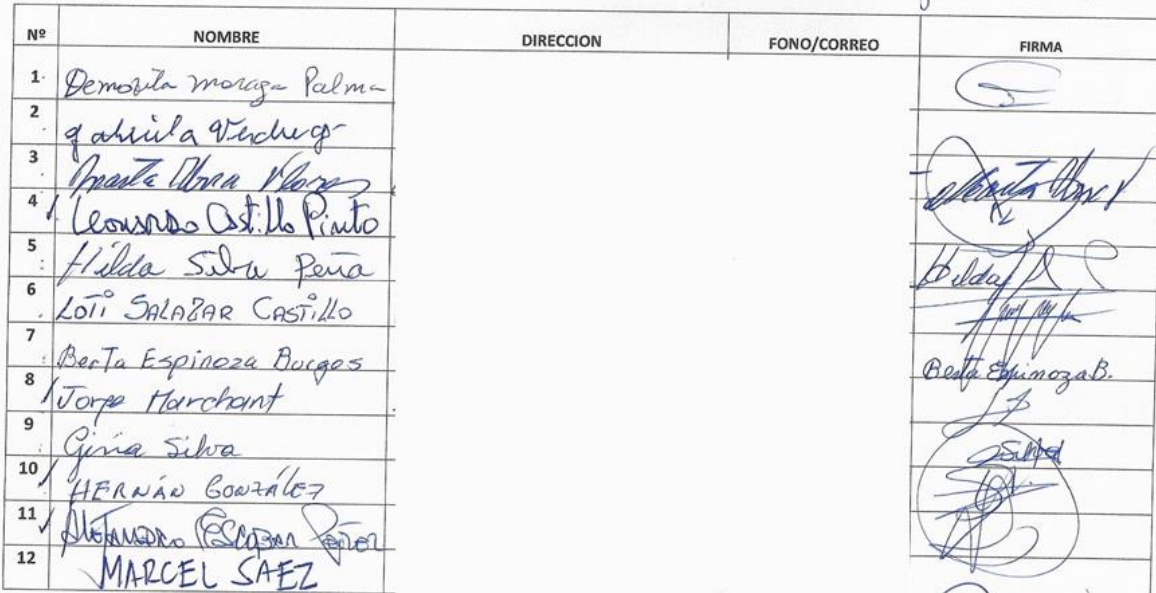 Nº NOMBRE DIRECCION FONO/CORREO FIRMA
1. Demofila Moraga Palma
2. gabriela Verdugo
3. Marta Flores
Marta
4. Leonardo Castillo Pinto
5. Hilda Silva Peña Hilda
6. LOTI SALAZAR CASTILLO
7. Berta Espinoza Burgos Berta Espinoza B.
8. Jorge Marchant
9. Gina Silva
10 HERNÁN GONZÁLEZ
11 Alejandro Escobar
12 MARCEL SAEZ